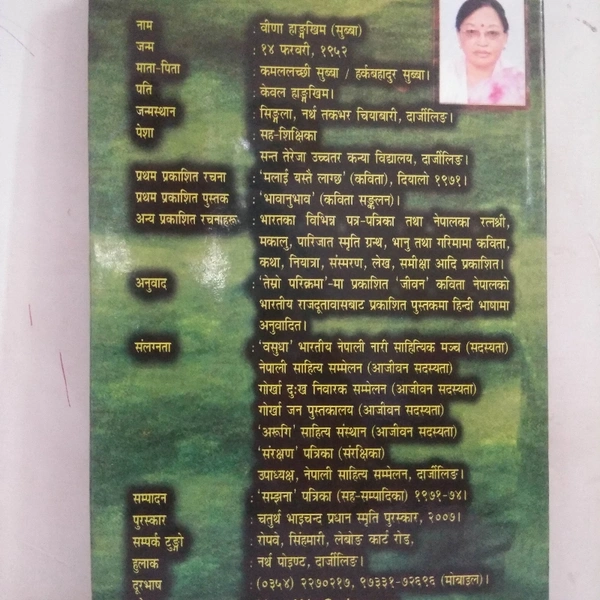 नाम : वीणा हाङ्मखिम (सुब्बा)
जन्म : १४ फरवरी, १९५२
माता-पिता : कमललच्छी सुब्बा / हर्कबहादुर सुब्बा।
पति : केवल हाङ्मखिम।
जन्मस्थान : सिङ्गला, नर्थ तकभर चियाबारी, दार्जीलिङ।
पेशा : सह-शिक्षिका
सन्त तेरेजा उच्चतर कन्या विद्यालय, दार्जीलिङ।
प्रथम प्रकाशित रचना : 'मलाई यस्तै लाग्छ' (कविता), दियालो १९७१।
प्रथम प्रकाशित पुस्तक : 'भावानुभाव' (कविता सङ्कलन)।
अन्य प्रकाशित रचनाहरू : भारतका विभिन्न पत्र-पत्रिका तथा नेपालका रत्नश्री,
मकालु, पारिजात स्मृति ग्रन्थ, भानु तथा गरिमामा कविता,
कथा, नियात्रा, संस्मरण, लेख, समीक्षा आदि प्रकाशित।
अनुवाद : 'तेस्रो परिक्रमा'-मा प्रकाशित 'जीवन' कविता नेपालको
भारतीय राजदूतावासबाट प्रकाशित पुस्तकमा हिन्दी भाषामा
अनुवादित।
संलग्नता : 'वसुधा' भारतीय नेपाली नारी साहित्यिक मञ्च (सदस्यता)
नेपाली साहित्य सम्मेलन (आजीवन सदस्यता)
गोर्खा दुःख निवारक सम्मेलन (आजीवन सदस्यता)
गोर्खा जन पुस्तकालय (आजीवन सदस्यता)
'अरूगि' साहित्य संस्थान (आजीवन सदस्यता)
'संरक्षण' पत्रिका (संरक्षिका)
उपाध्यक्ष, नेपाली साहित्य सम्मेलन, दार्जीलिङ।
सम्पादन : 'सम्झना' पत्रिका (सह-सम्पादिका) १९७१-७४।
पुरस्कार : चतुर्थ भाइचन्द प्रधान स्मृति पुरस्कार, २००७।
सम्पर्क टुङ्गो : रोपवे, सिंहमारी, लेबोङ कार्ट रोड,
हुलाक : नर्थ पोइण्ट, दार्जीलिङ।
दूरभाष : (०३५४) २२७०२१७, ९७३३१-७२६९६ (मोबाइल)।